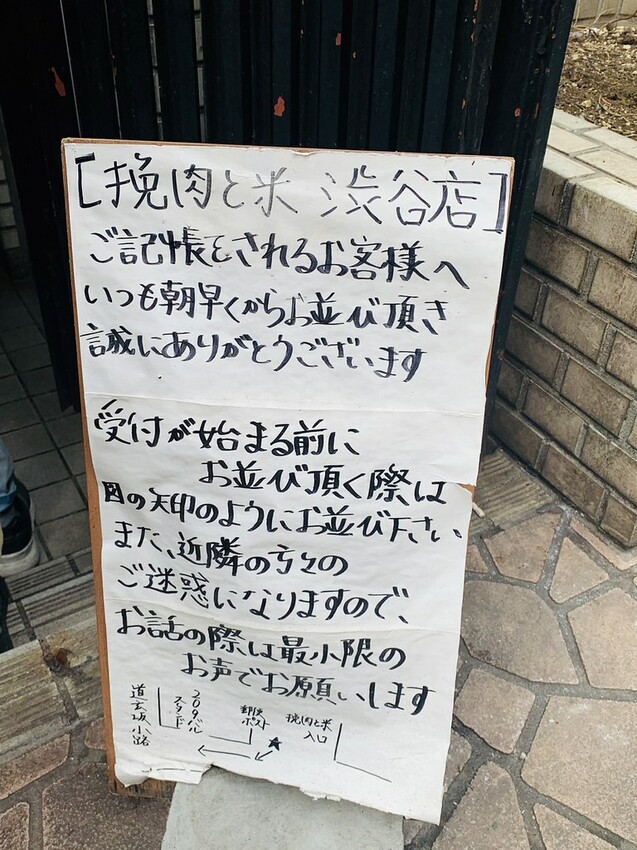 [挽肉と米 渋谷店]
ご記帳をされるお客様へ
いつも朝早くからお並び頂き
誠にありがとうございます
受付が始まる前に
お並び頂く際は
図の矢印のようにお並び下さい。
また、近隣の方々の
ご迷惑になりますので、
お話の際は最小限の
お声でお願いします
道玄坂小路
209バル
スタンド
郵便
ポスト
挽肉と米
入口